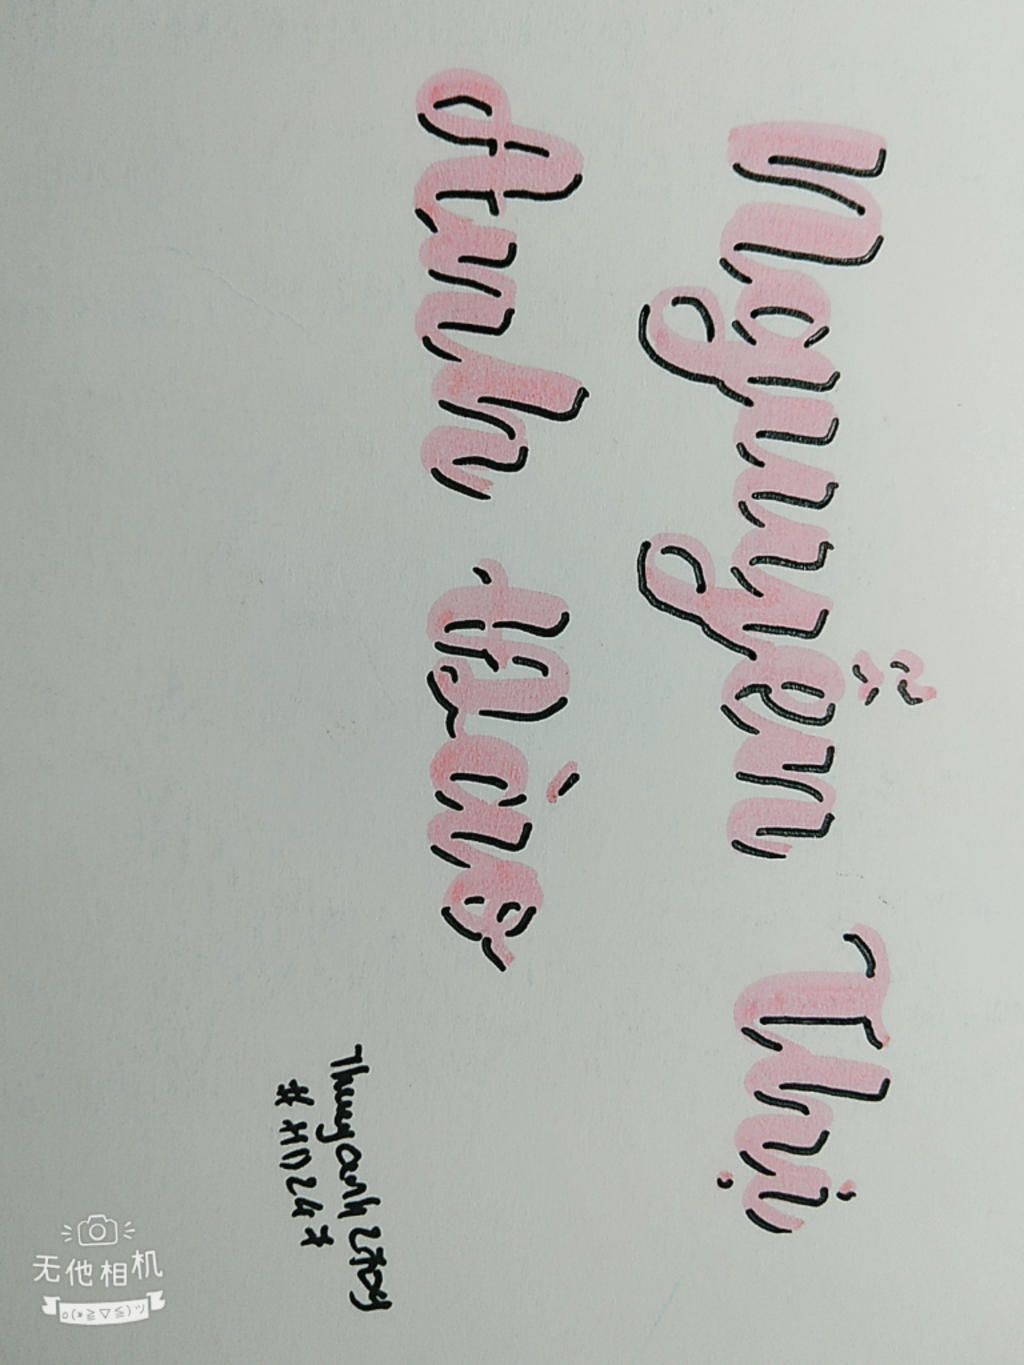 Nguyễn Thị
Anh Đào
#HD24#
无他相机